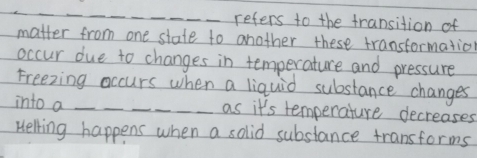 _ _ _ _ _ _ _ _ _ _ _ refers to the transition of
matter from one state to another these transformation
occur due to changes in temperature and pressure
Freezing occurs when a liquid substance changes
into a _ _ _ _ _ _ as it's temperature decreases
Melting happens when a solid substance transforms